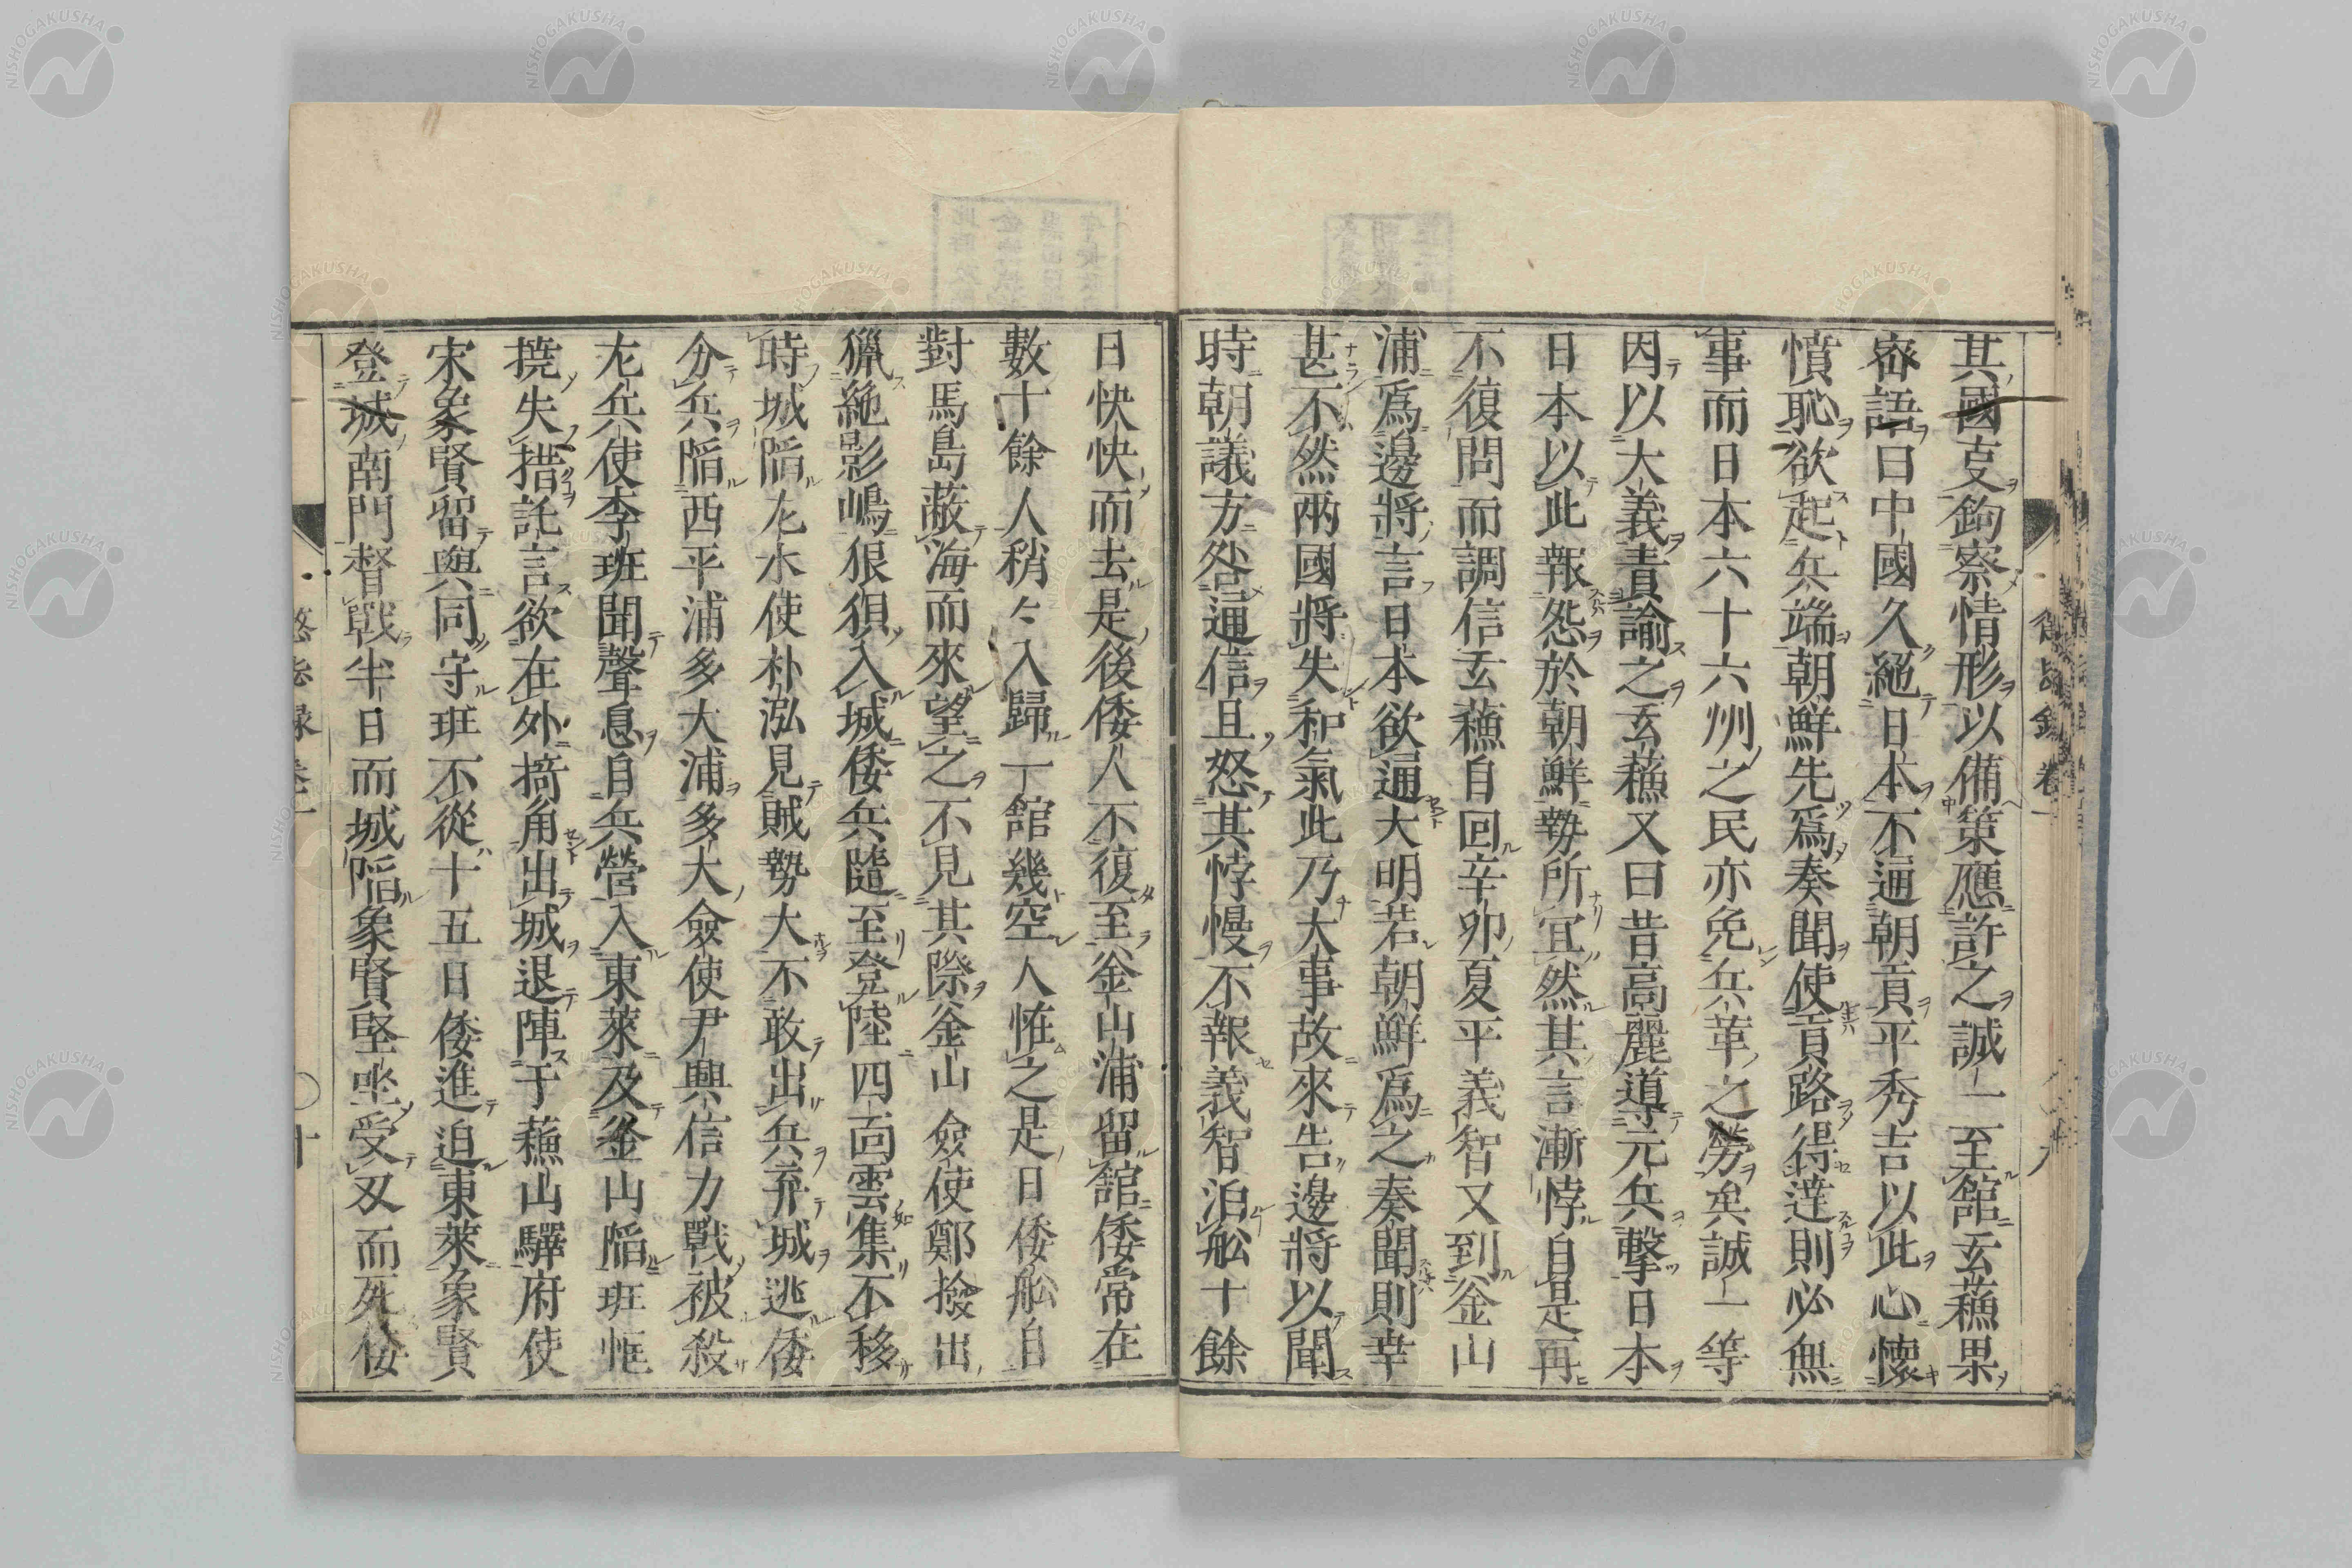 其國叓鉤察情形以備策應許之誠一至舘玄蘓果
宻語曰中國久絕日本不通朝貢平秀吉以此心懷
憤恥欲起兵端朝鮮先爲奏聞使貢路得達則必無
事而日本六十六州之民亦免兵革之勞矣誠一等
因以大義責諭之玄蘓又曰昔高麗導元兵擊日本
日本以此報怨於朝鮮勢所冝然其言漸悖自是再
不復問而調信玄蘓自回辛卯夏平義智又到釜山
浦爲邊將言日本欲通大明若朝鮮爲之奏聞則幸
甚不然兩國將失和氣此乃大事故來告邊將以聞
時朝議方咎通信且怒其悖慢不報義智泊舩十餘
日怏怏而去是後倭人不復至釜山浦留舘倭常在
數十餘人稍々入歸一舘幾空人恠之是日倭舩自
對馬島蔽海而來望之不見其際釜山僉使鄭撥出
獵絶影嶋狠狽入城倭兵隨至登陸四面雲集不移
時城陷左水使朴泓見賊勢大不敢出兵弃城逃倭
分兵陷西平浦多大浦多大僉使尹興信力戰被殺
左兵使李班聞聲息自兵營入東萊及釜山陷班恇
撓失措託言欲在外掎角出城退陣于蘓山驛府使
宋象賢留與同守班不從十五日倭進迫東萊象賢
登城南門督戰半日而城陷象賢堅坐受刄而死倭
懲毖錄 卷一
十